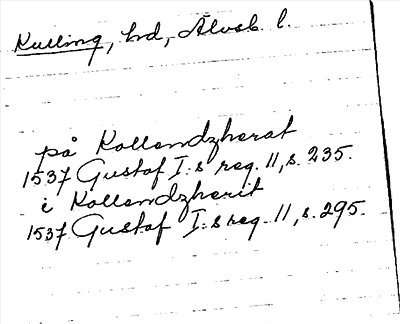 Kulling, hd, Älvsb. l.
på Kollandzherat
1537 Gustaf I:s reg. 11, s. 235.
i Kollandzherit
1537 Gustaf I:s reg. 11, s. 295.